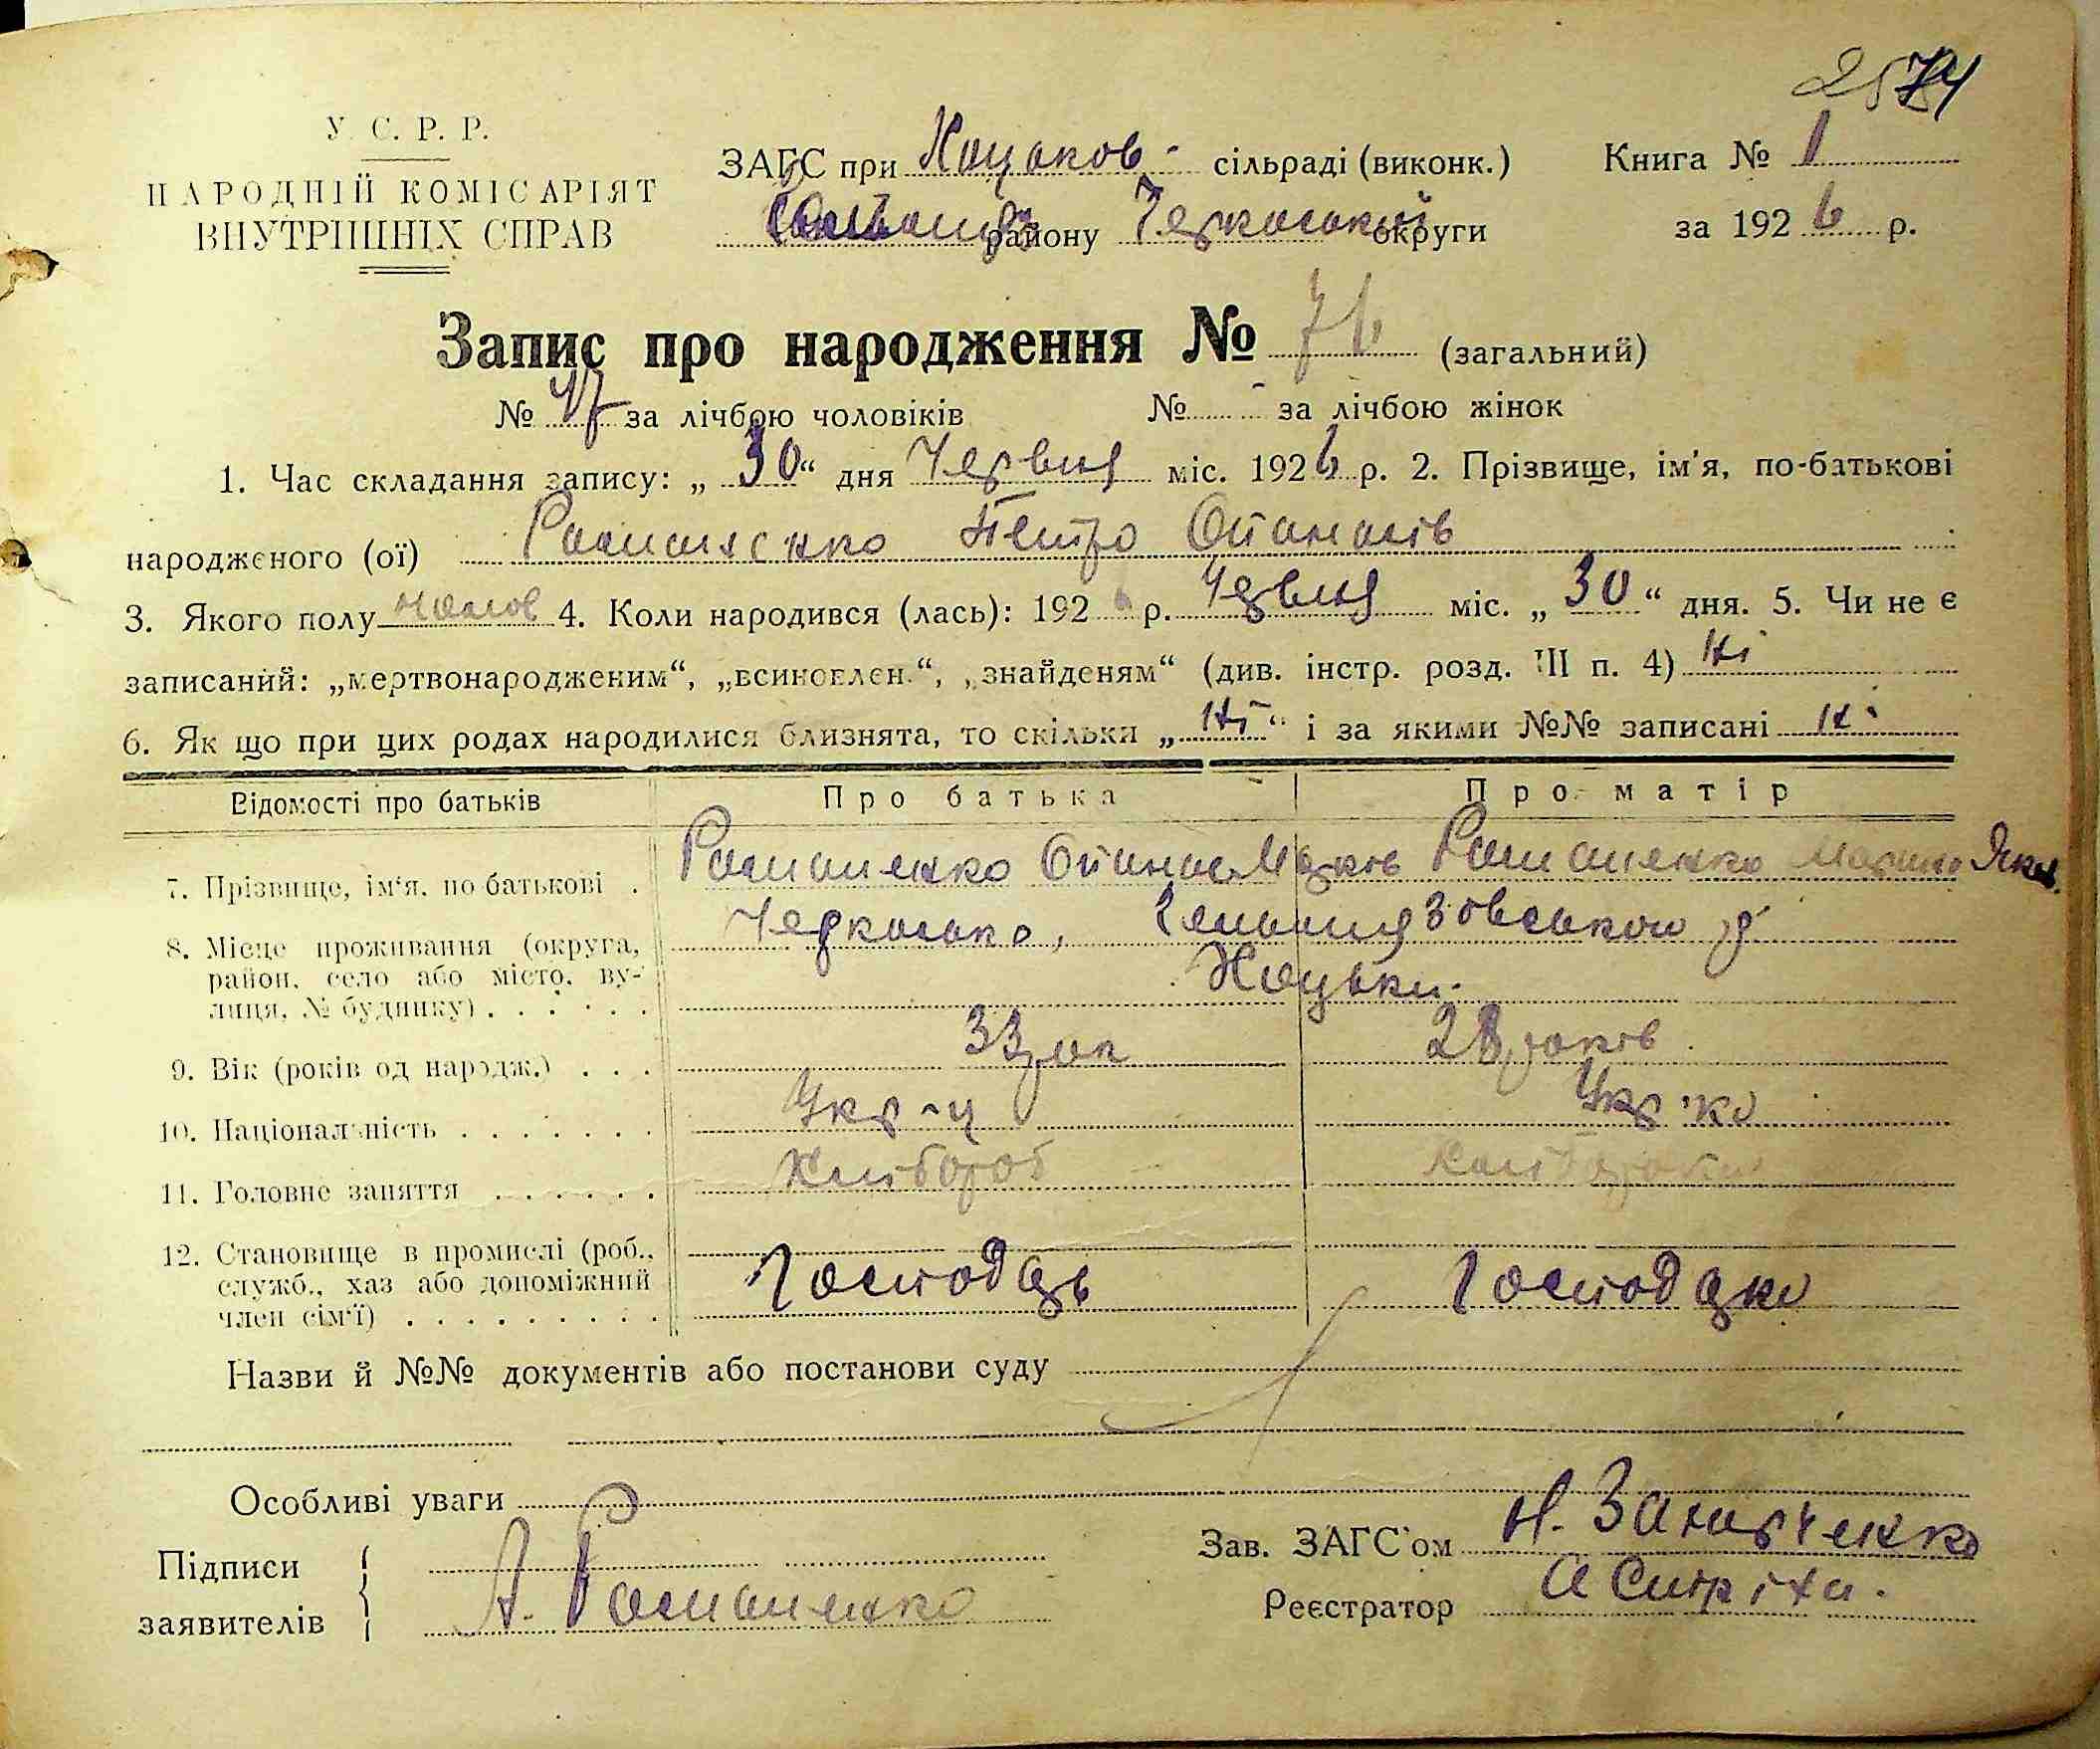 У. С. Р. Р.
НАРОДНІЙ КОМІСАРІЯТ
ВНУТРІШНІХ СПРАВ
ЗАГС при Коцаков- сільраді (виконк.)
району Черкаської округи
Книга № 1
за 1926 р.
Запис про народження № 76 (загальний)
№ 47 за лічбою чоловіків № - за лічбою жінок
1. Час складання запису: „30“ дня Червня міс. 1926 р. 2. Прізвище, ім'я, по-батькові
народженого (ої) Романенко Петро Опанасів
3. Якого полу 4. Коли народився (лась): 1926 р. Червня міс. „30“ дня. 5. Чи не є
записаний: „мертвонародженим“, „всиновлен.“, „знайденям“ (див. інстр. розд. III п. 4) Ні
6. Як що при цих родах народилися близнята, то скільки „Ні“ і за якими №№ записані Ні
Відомості про батьків Про батька Про матір
7. Прізвище, ім'я, по батькові . Романенко Опанас Марків Романенко Яков.
8. Місце проживання (округа, район, село або місто, вулиця, № будинку) . . . . . . Черкасько, Гельмязовського р
Коцьки.
9. Вік (років од народж.) . . . 33 рок 28 років
10. Національність . . . . . . . Укр-ц Укр-ка
11. Головне заняття . . . . . . Хлібороб
12. Становище в промислі (роб., служб., хаз або допоміжний член сім'ї) . . . . . . . . . Господарь Господарка
Назви й №№ документів або постанови суду
Особливі уваги
Підписи
заявителів А. Романенко
Зав. ЗАГС'ом Н. Захарченко
Реєстратор